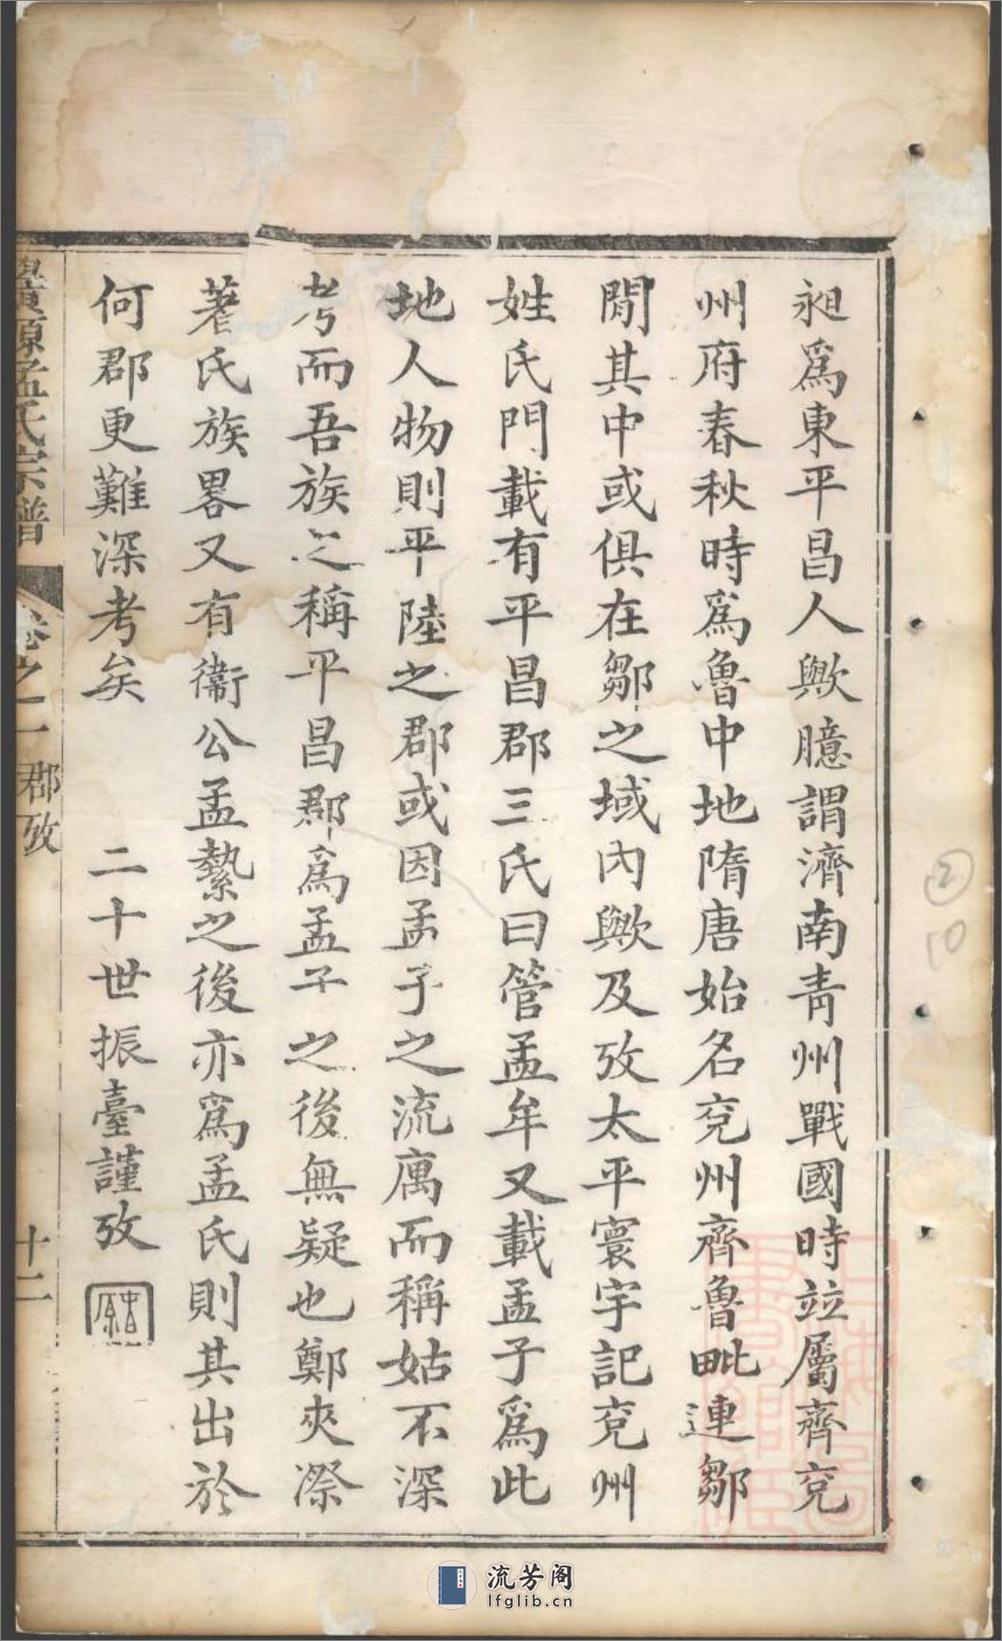 昶爲東平昌人歟臆謂濟南青州戰國時竝屬齊兗
州府春秋時爲魯中地隋唐始名兗州齊魯毗連鄒
閒其中或俱在鄒之域內歟及攷太平寰宇記兗州
姓氏門載有平昌郡三氏曰管孟牟又載孟子爲此
地人物則平陸之郡或因孟子之流寓而稱姑不深
考而吾族之稱平昌郡爲孟子之後無疑也鄭夾漈
著氏族畧又有衞公孟縶之後亦爲孟氏則其出於
何郡更難深考矣 二十世振臺謹攷
源孟氏宗譜 卷之一 郡攷 十二
② 10
流芳阁
lfglib.cn